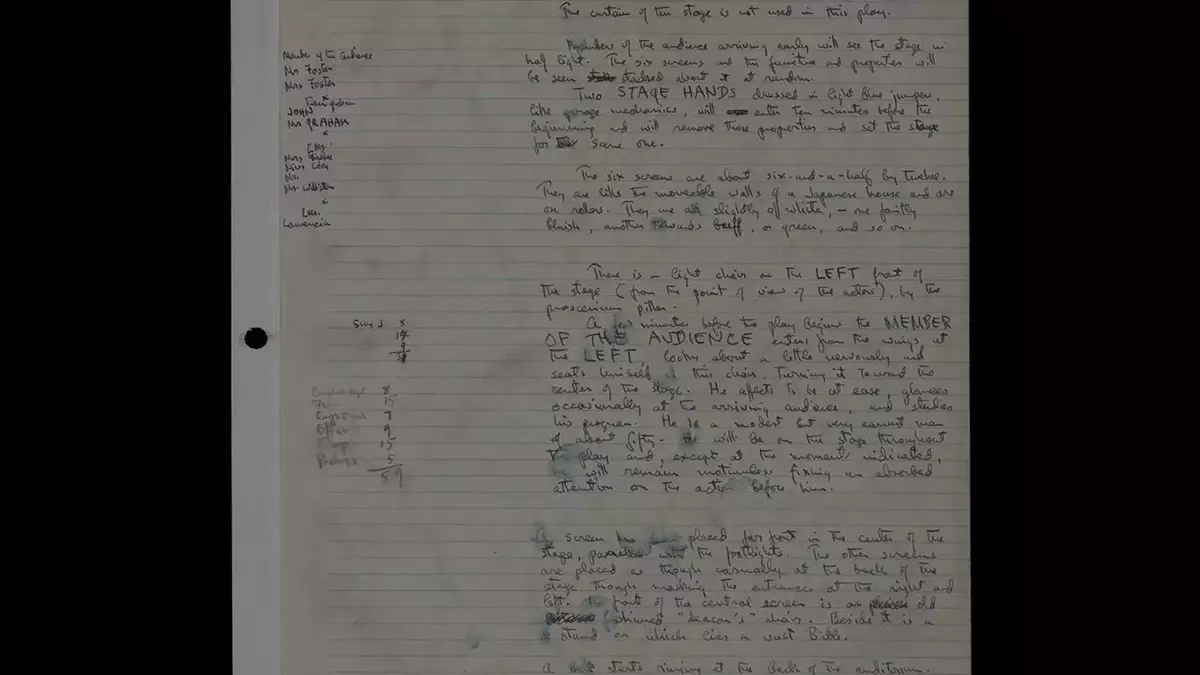 The curtain of the stage is not used in this play.
Members of the audience arriving early will see the stage in
half light. The six screens and the furniture and properties will
be seen studsed about it at random.
Two STAGE HANDS dressed in light blue jumpers,
like garage mechanics, will enter ten minutes before the
beginning and will remove these properties and set the stage
for Scene one.
Member of the Audience
Mr Foster
Mrs Foster
JOHN
Mr GRAHAM
The six screens are about six-and-a-half by twelve.
They are like the moveable walls of a Japanese house and are
on rollers. They are all slightly off white, – one faintly
bluish, another towards buff, or green, and so on.
There is a light chair on the LEFT front of
the stage (from the point of view of the actors), by the
proscenium pillar.
A few minutes before the play begins the MEMBER
OF THE AUDIENCE enters from the wings at
the LEFT, looks about a little nervously and
seats himself on this chair, turning it toward the
center of the stage. He affects to be at ease, glances
occasionally at the arriving audience, and studies
his program. He is a modest but very earnest man
of about fifty. He will be on the stage throughout
the play and, except at the moments indicated,
he will remain motionless fixing an absorbed
attention on the action before him.
8
15
7
9
15
5
59
A screen has been placed far front in the center of the
stage, parallel with the footlights. The other screens
are placed as though casually at the back of the
stage though masking the entrances at the right and
left. In front of the central screen is an old
fashioned "deacon's" chair. Beside it is a
stand on which lies a vast Bible.
A starts ringing at the back of the auditorium.